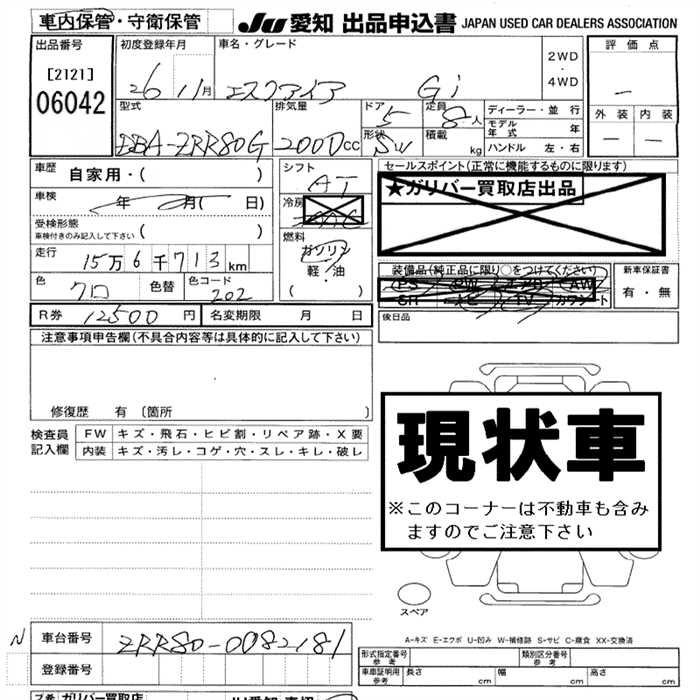 車内保管・守衛保管 JU 愛知 出品申込書 JAPAN USED CAR DEALERS ASSOCIATION
出品番号 初度登録年月 車名・グレード 2WD・4WD 評価点
[2121] 06042 26 11月 エスクァイア Gi —
外装 内装
— —
型式 排気量 ドア 定員 ディーラー・並行
DBA-ZRR80G 2000cc 5 8人 モデル年式 年
形状 SW 積載 kg ハンドル 左・右
車歴 自家用・( ) シフト AT セールスポイント(正常に機能するものに限ります)
車検 年 月( 日) 冷房 ★ガリバー買取店出品
受検形態
車検付きのみ記入して下さい ( )
燃料
ガソリン
軽・油
( )
走行 15万6千713km
装備品(純正品に限り○をつけてください) 新車保証書
PS PW AW 有・無
SR ナビ TV カワシート
色 クロ 色替 色コード 202
R券 12500円 名変期限 月 日 後日品
注意事項申告欄(不具合内容等は具体的に記入して下さい)
修復歴 有 〔箇所 〕
検査員記入欄 FW キズ・飛石・ヒビ割・リペア跡・X要
内装 キズ・汚レ・コゲ・穴・スレ・キレ・破レ
現状車
※このコーナーは不動車も含み
ますのでご注意下さい
スペア
A-キズ E-エクボ U-凹み W-補修跡 S-サビ C-腐食 XX-交換済
N 車台番号 ZRR80-0082181
登録番号
形式指定番号 参考 類別区分番号 参考
車庫証明用 参考 長さ cm 幅 cm 高さ cm
ガリバー買取店 JU愛知